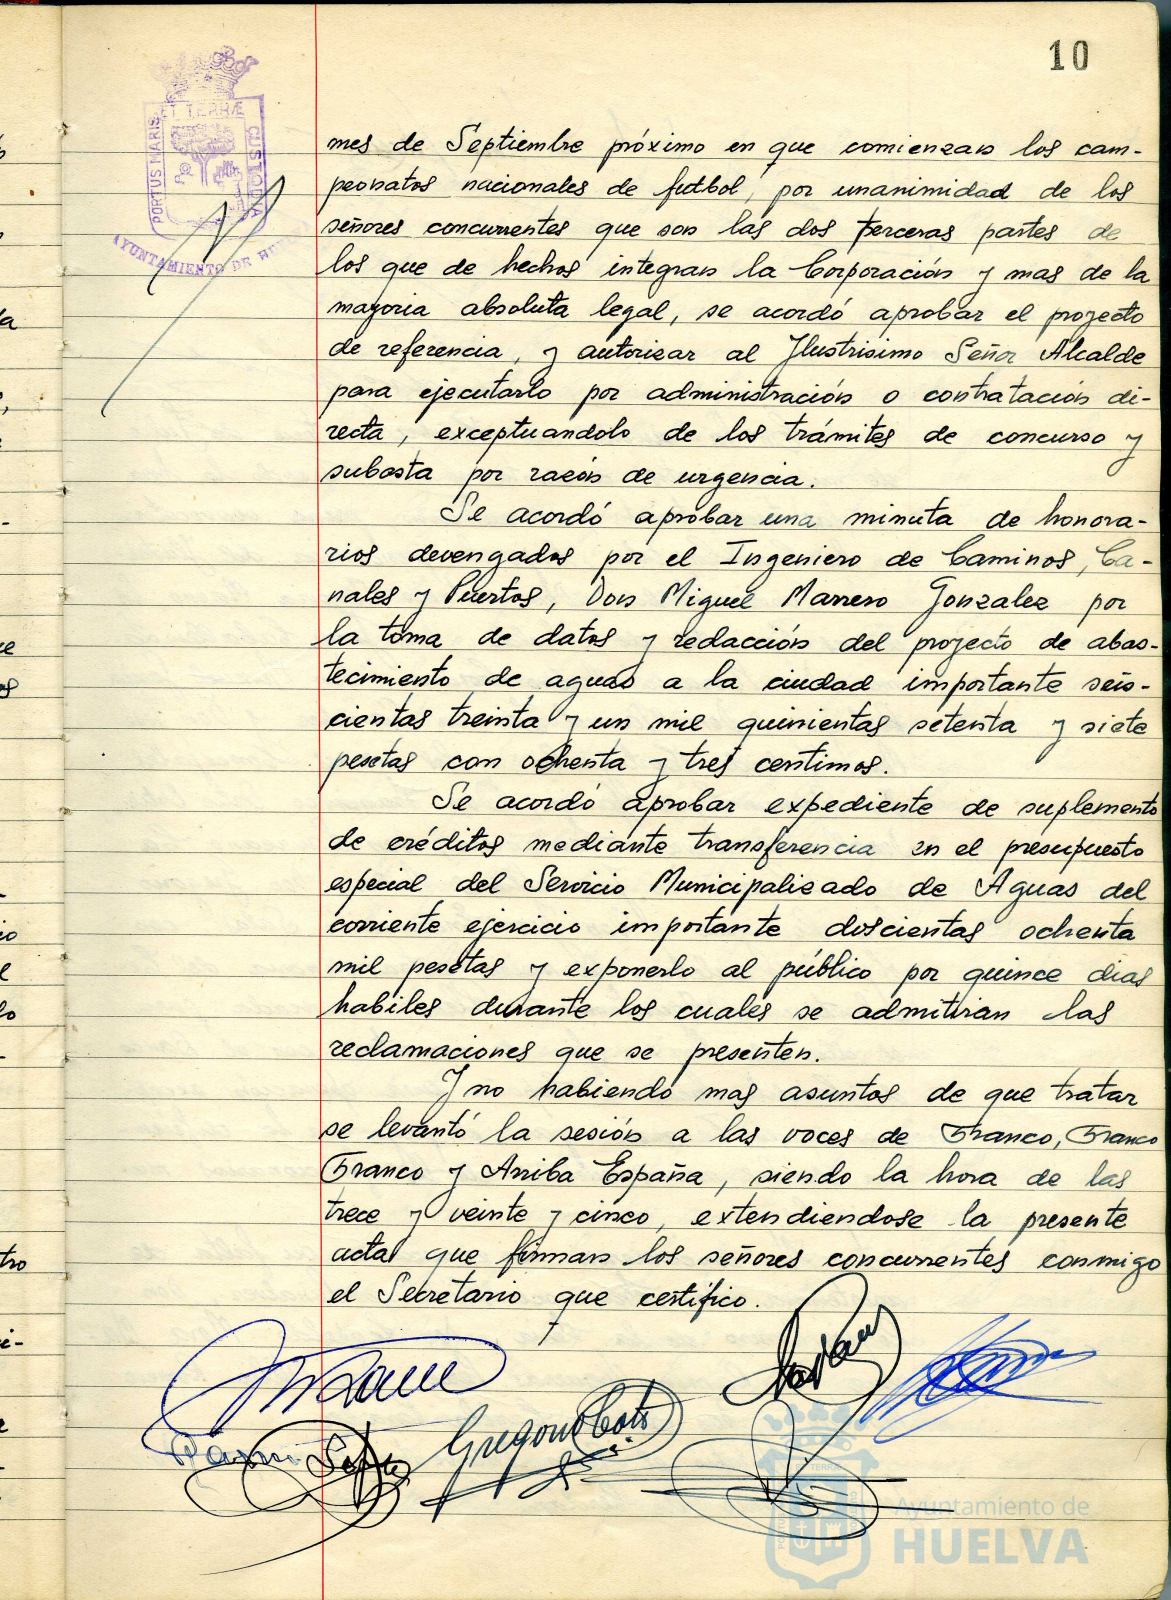 10
PORTUS MARIS
ET TERRÆ
CUSTODIA
AYUNTAMIENTO DE
mes de Septiembre próximo en que comienzan los cam-
peonatos nacionales de futbol, por unanimidad de los
señores concurrentes que son las dos terceras partes de
los que de hechos integran la Corporación y mas de la
mayoria absoluta legal, se acordó aprobar el proyecto
de referencia, y autorizar al Ilustrisimo Señor Alcalde
para ejecutarlo por administración o contratación di-
recta, exceptuandolo de los trámites de concurso y
subasta por razón de urgencia.
Se acordó aprobar una minuta de honora-
rios devengados por el Ingeniero de Caminos, Ca-
nales y Puertos, Don Miguel Marrero Gonzalez por
la toma de datos y redacción del proyecto de abas-
tecimiento de aguas a la ciudad importante seis-
cientas treinta y un mil quinientas setenta y siete
pesetas con ochenta y tres centimos.
Se acordó aprobar expediente de suplemento
de créditos mediante transferencia en el presupuesto
especial del Servicio Municipalizado de Aguas del
corriente ejercicio importante doscientas ochenta
mil pesetas y exponerlo al público por quince dias
habiles durante los cuales se admitiran las
reclamaciones que se presenten.
Y no habiendo mas asuntos de que tratar
se levantó la sesión a las voces de Franco, Franco
Franco y Arriba España, siendo la hora de las
trece y veinte y cinco, extendiendose la presente
acta que firman los señores concurrentes conmigo
el Secretario que certifico.
Gregorio
Ayuntamiento de
HUELVA